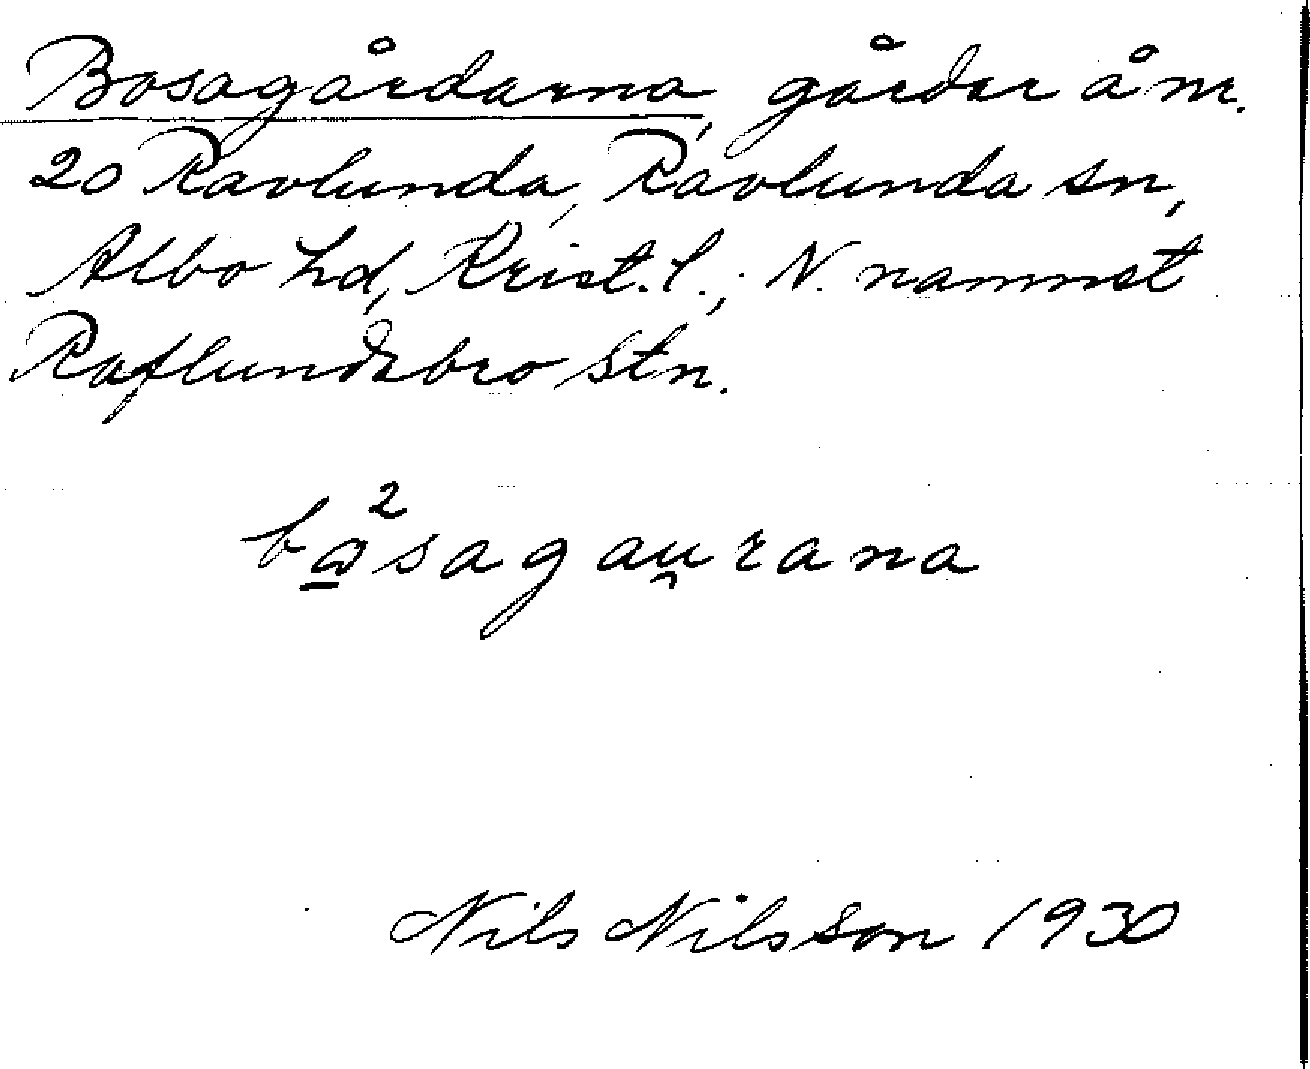 Bosagårdarna, gårdar å nr.
20 Ravlunda, Ravlunda sn,
Albo hd, Krist. l.; N. namnst
Raflundabro stn.
bɷ̲²sagau̯rana
Nils Nilsson 1930